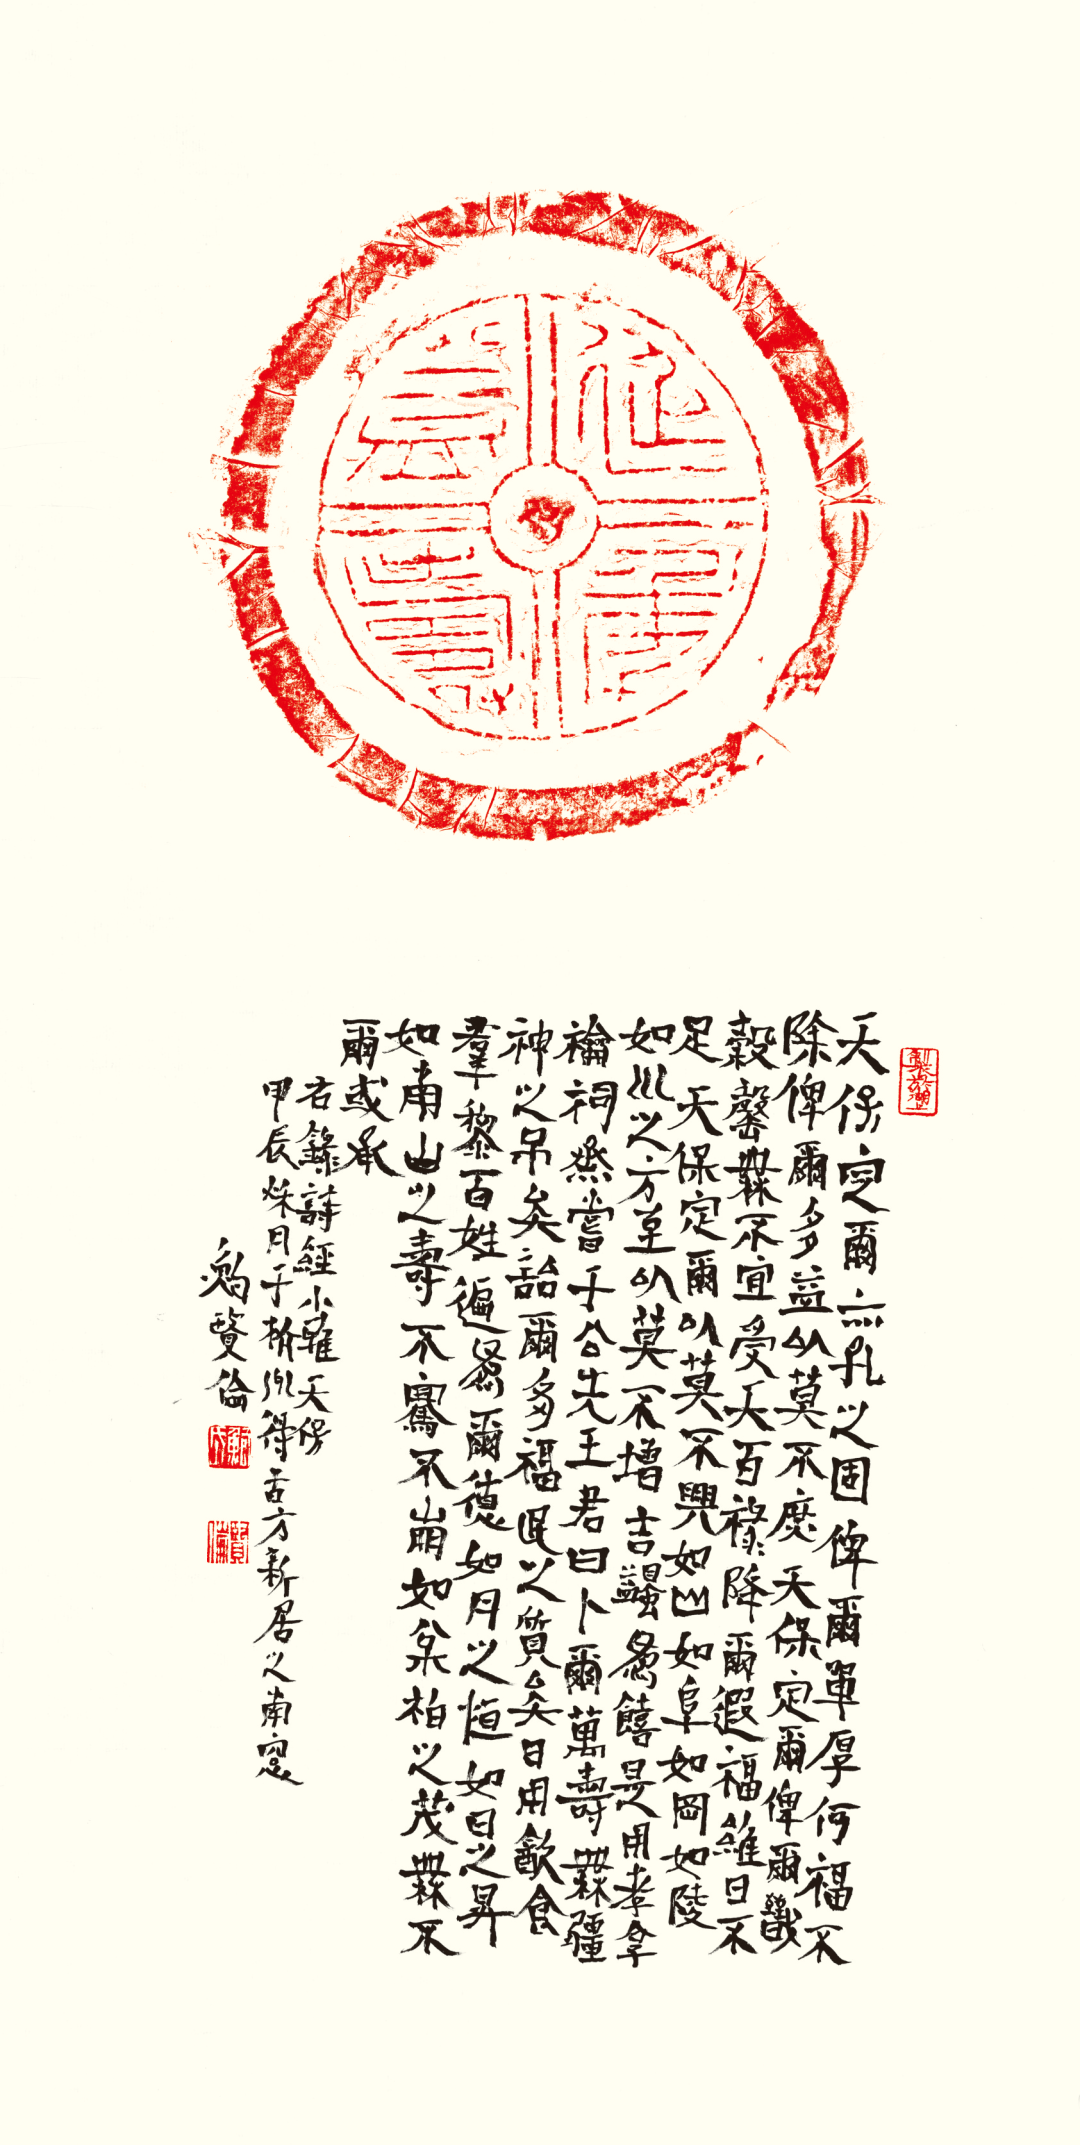 延年益壽
天保定爾亦孔之固俾爾單厚何福不
除俾爾多益以莫不庶天保定爾俾爾戩
穀罄無不宜受天百祿降爾遐福維日不
足天保定爾以莫不興如山如阜如岡如陵
如川之方至以莫不增吉蠲為饎是用孝享
禴祠烝嘗于公先王君曰卜爾萬壽無疆
神之弔矣詒爾多福民之質矣日用飲食
羣黎百姓遍爲爾德如月之恒如日之昇
如南山之壽不騫不崩如松柏之茂無不
爾或承
右錄詩經小雅天保
甲辰秋月于杭州得古方新居之南窗
鮑賢倫
賢倫